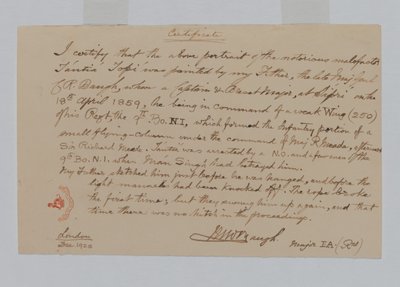 Certificate
I certify that the above portrait of the notorious malefactor
Tántia Topi was painted by my Father, the late Maj. Genl
Baugh, when a Captain & Brevet Major, at Sipri on the
18th April 1859, he being in command of a weak Wing (250)
of his Regt, the 9th Bo. N.I., which formed the Infantry portion of a
small flying-column under the command of Maj R. Meade, afterwards
Sir Richard Meade. Tantia was arrested by a N.O. and a few men of the
9th Bo. N.I. when Man Singh had betrayed him.
My Father sketched him just before he was hanged, and before the
light manacles had been knocked off. The rope broke
the first time; but they swung him up again, and that
time there was no hitch in the proceedings.
Baugh
London
Dec 1925
Major I.A. (Rd)